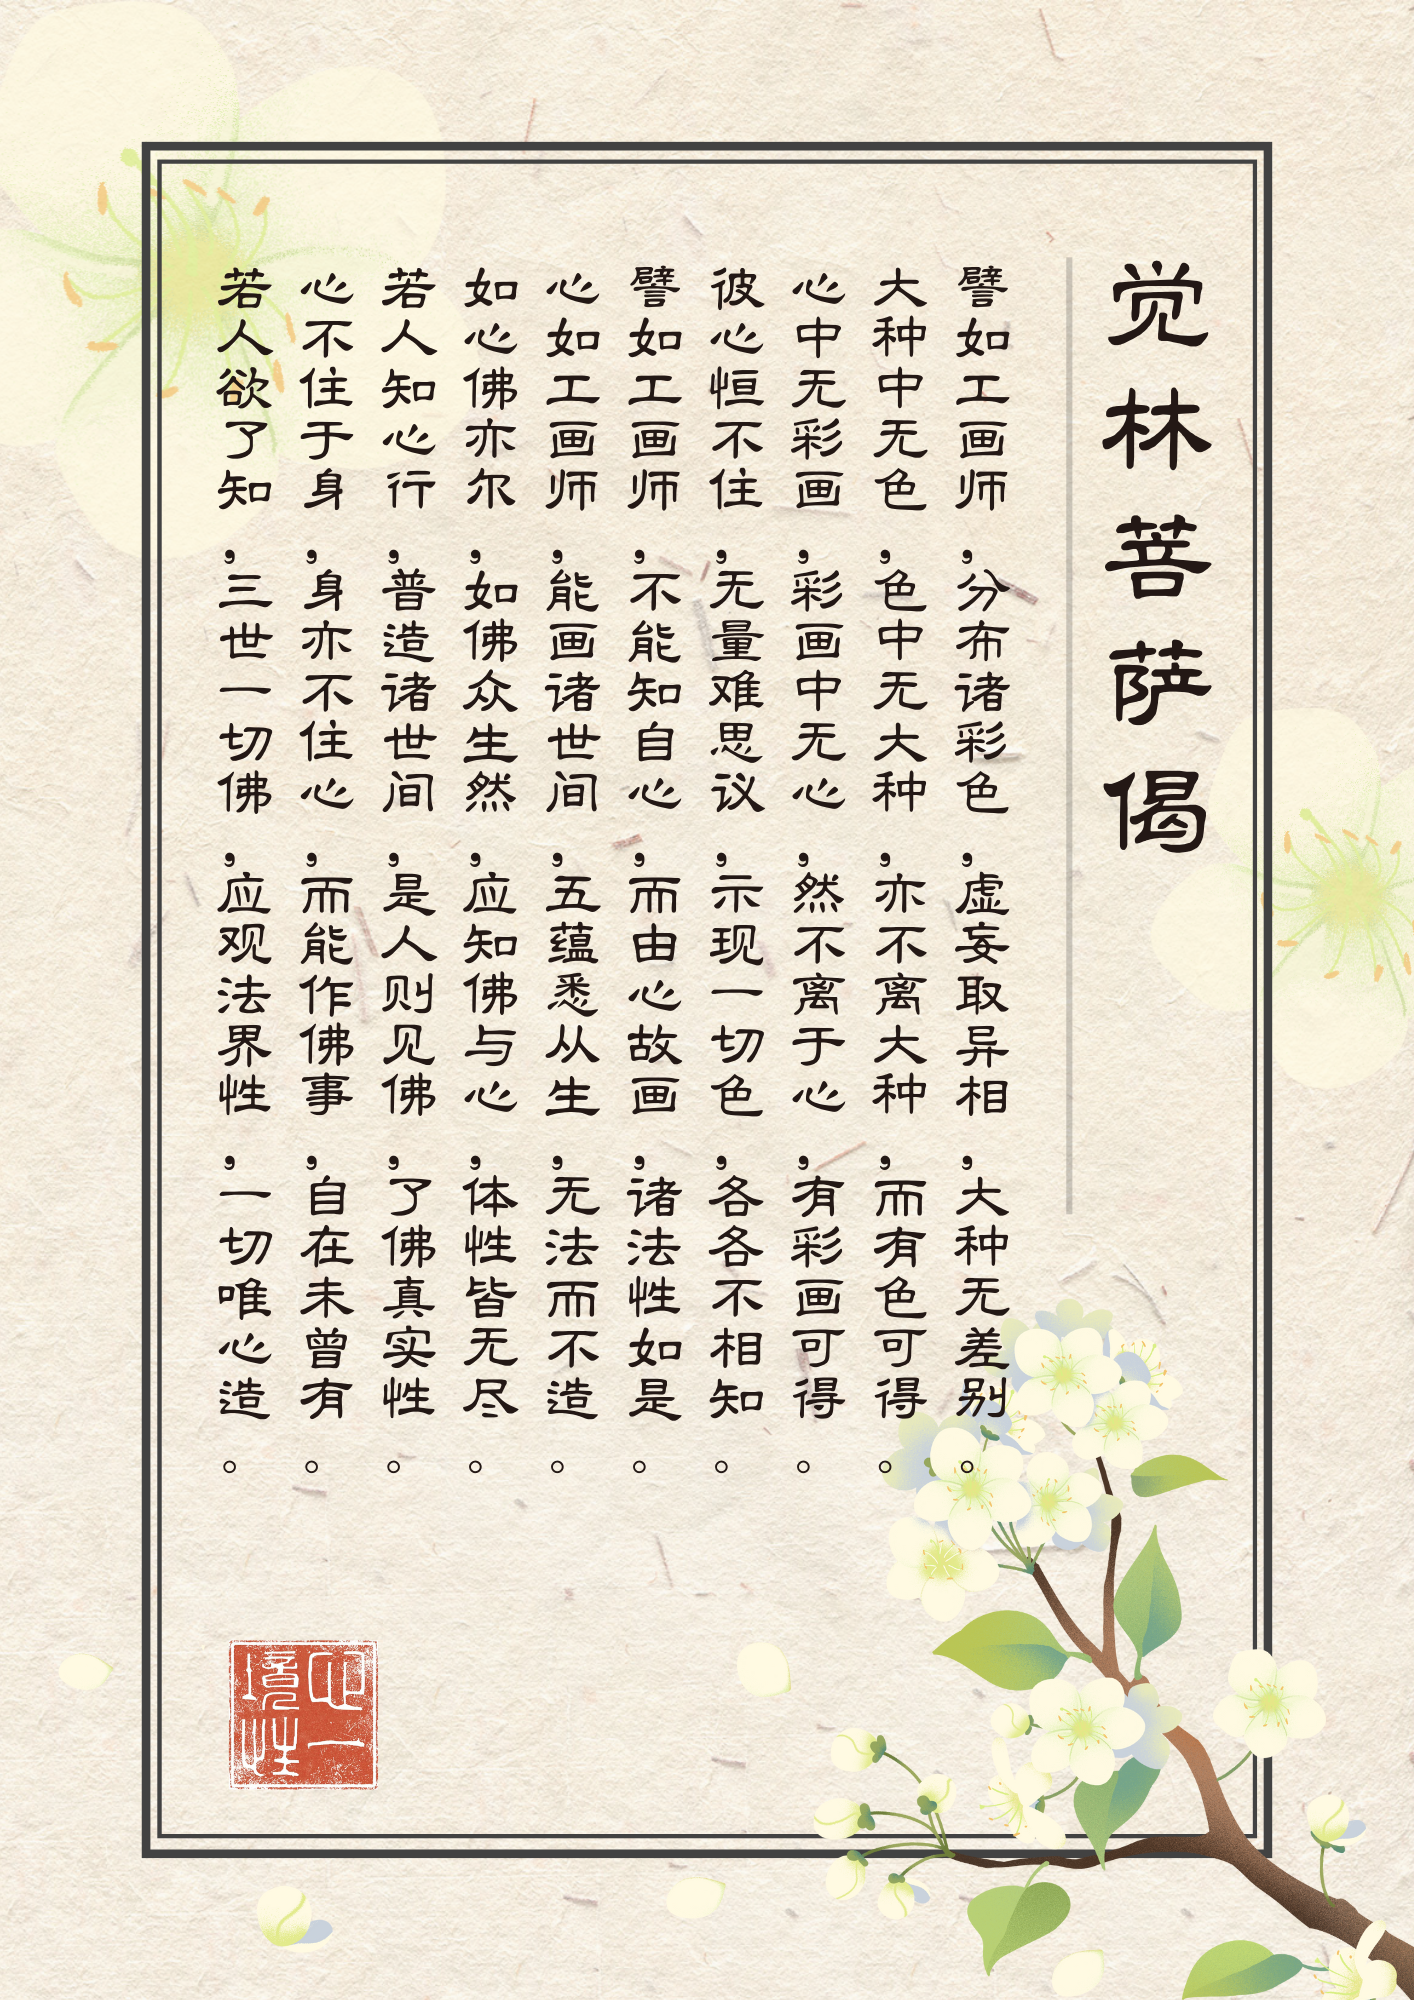 觉林菩萨偈
譬如工画师，分布诸彩色，虚妄取异相，大种无差别。
大种中无色，色中无大种，亦不离大种，而有色可得。
心中无彩画，彩画中无心，然不离于心，有彩画可得。
彼心恒不住，无量难思议，示现一切色，各各不相知。
譬如工画师，不能知自心，而由心故画，诸法性如是。
心如工画师，能画诸世间，五蕴悉从生，无法而不造。
如心佛亦尔，如佛众生然，应知佛与心，体性皆无尽。
若人知心行，普造诸世间，是人则见佛，了佛真实性。
心不住于身，身亦不住心，而能作佛事，自在未曾有。
若人欲了知，三世一切佛，应观法界性，一切唯心造。
心一
境性